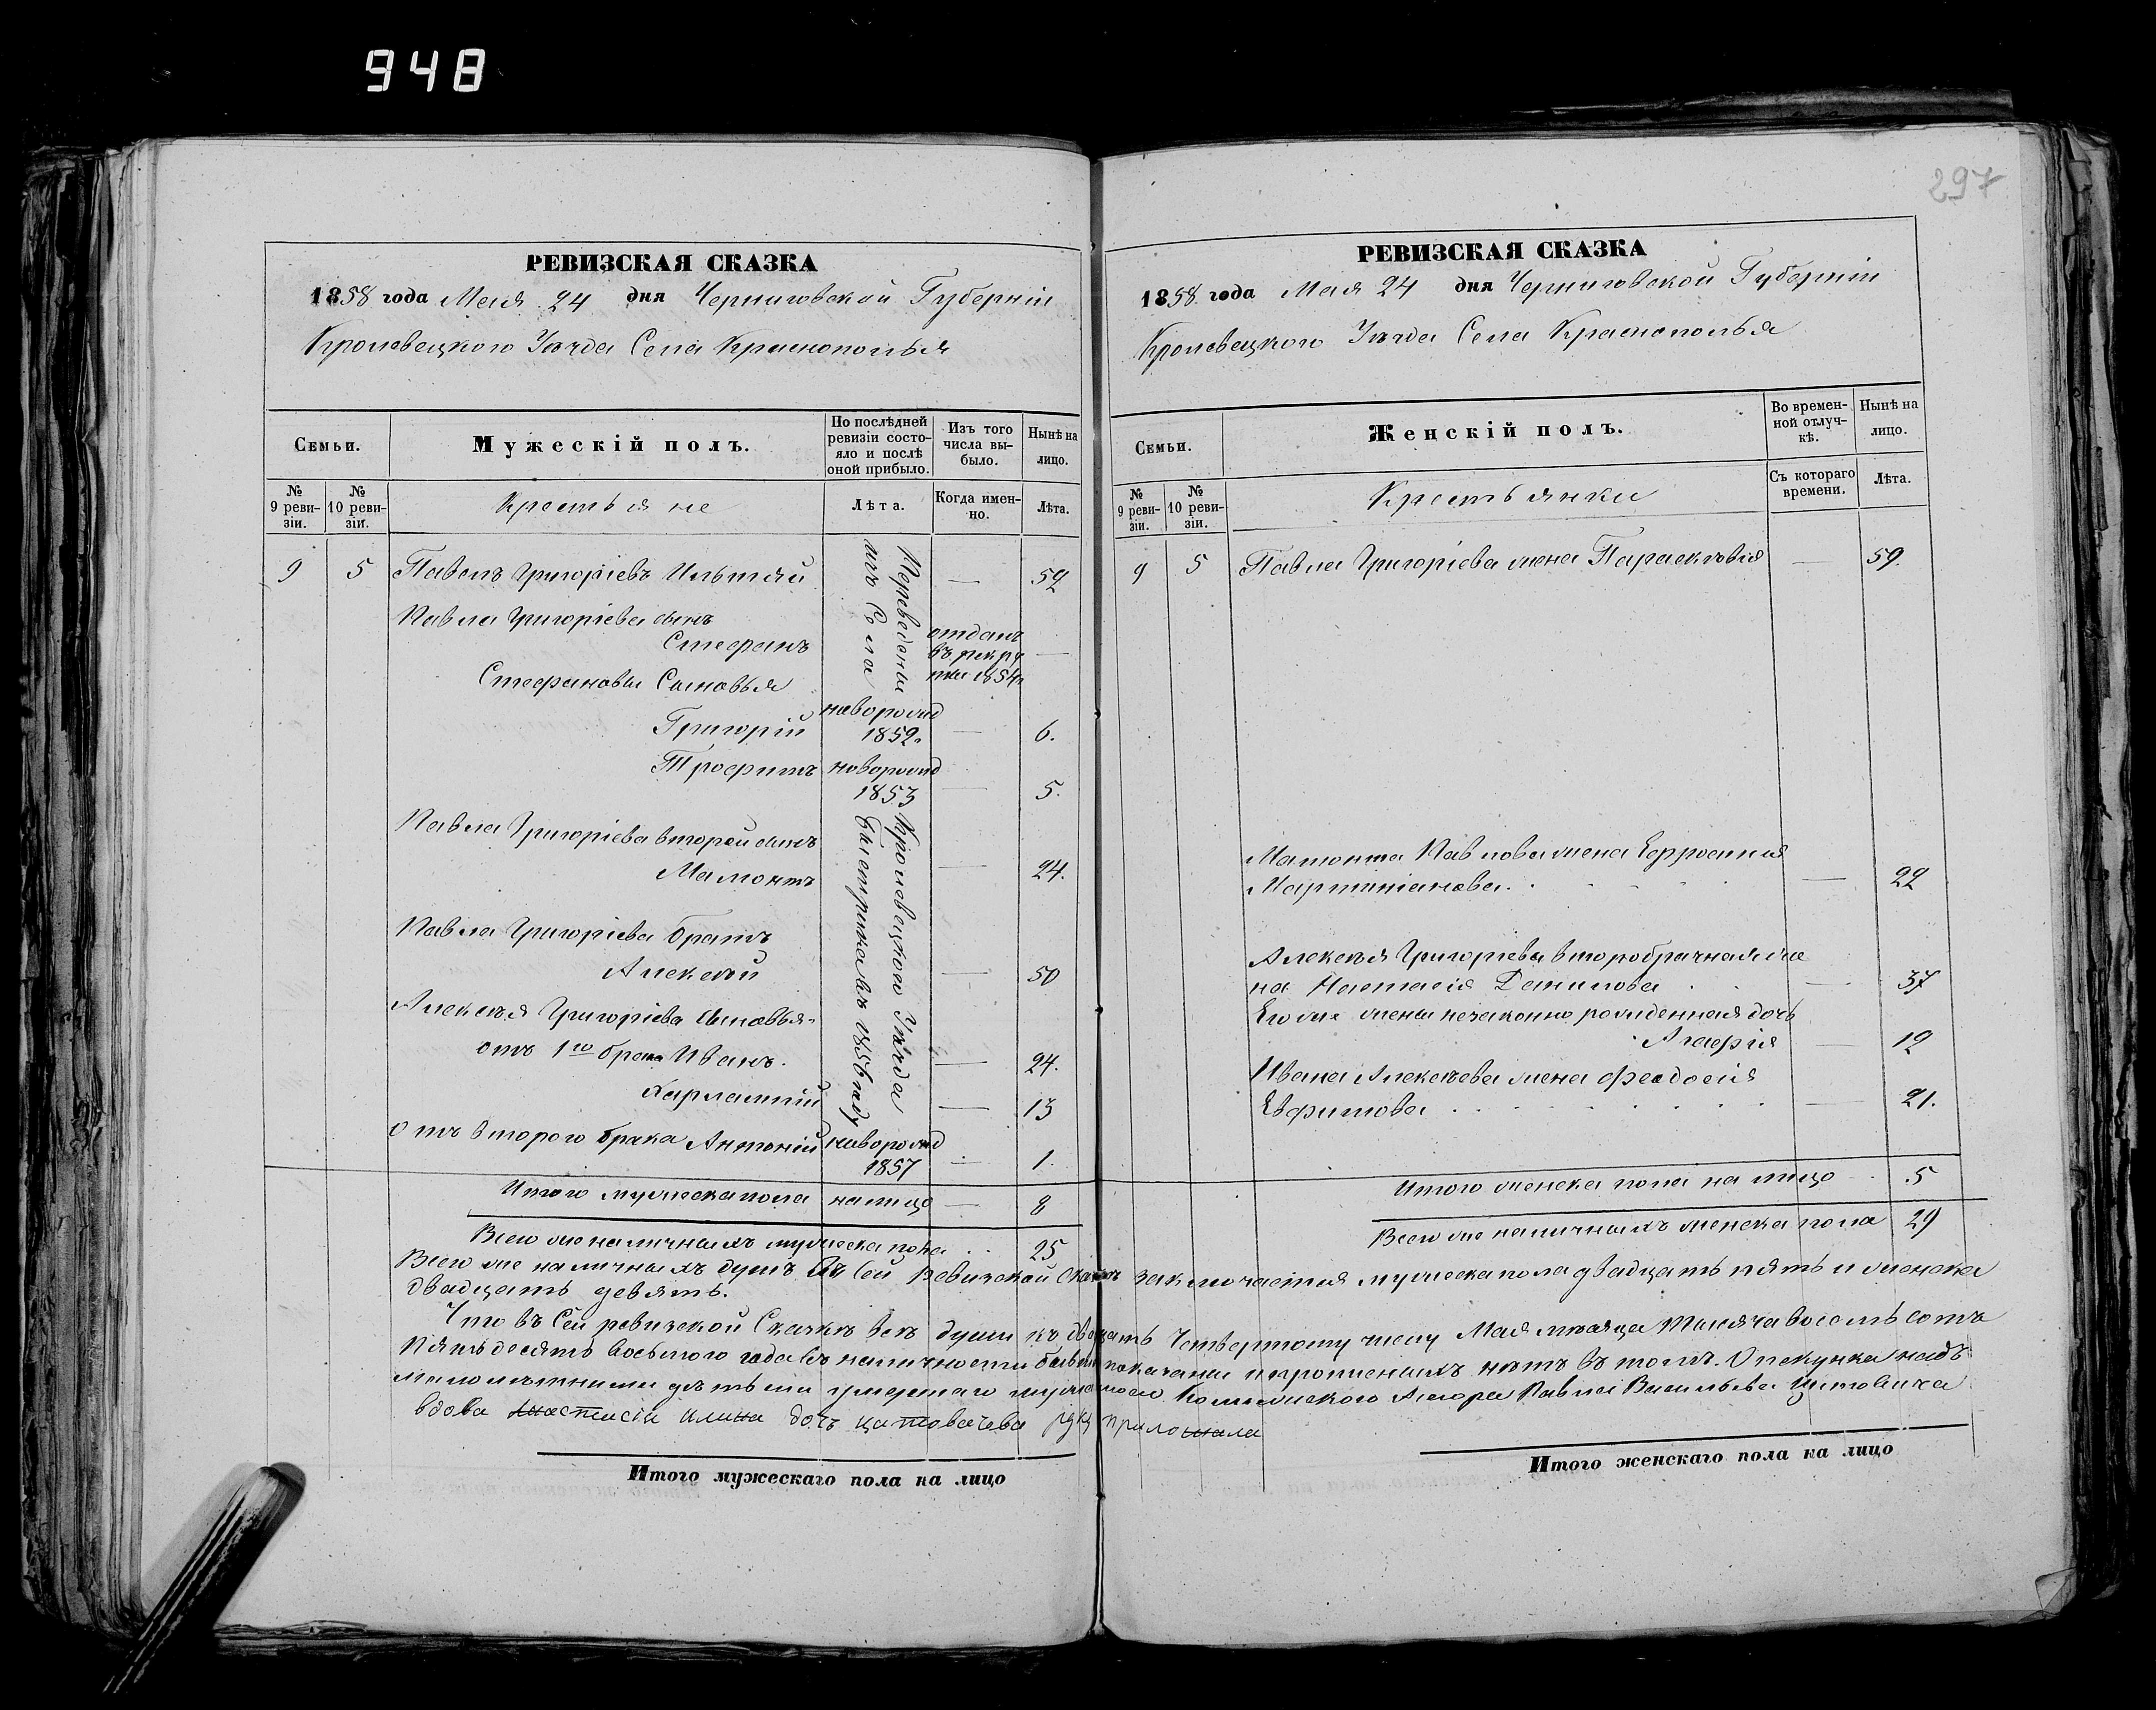 948
297
РЕВИЗСКАЯ СКАЗКА
1858 года Мая 24 дня Черниговской Губерніи
Кролевецкого Уѣзда Села Краснополья
Семьи.
Мужескій полъ.
По послѣдней ревизіи состояло и послѣ оной прибыло.
Изъ того числа выбыло.
Нынѣ на лицо.
№ 9 ревизіи.
№ 10 ревизіи.
Крестьяне
Лѣта.
Когда именно.
Лѣта.
9 5 Павелъ Григоріевъ — 59
Переведены изъ Села
Кролевецкого Уѣзда
въ 1856 году
Павла Григоріева сынъ
Стефанъ отданъ въ рекруты 1854 —
Стефановы Сыновья
Григорій новорожд 1852 — 6.
Трофимъ новорожд 1853 — 5.
Павла Григоріева второй сынъ
Мамонтъ — 24.
Павла Григоріева братъ
Алексѣй — 50
Алексѣя Григоріева сыновья
отъ 1го брака Иванъ. — 24.
Харлампій — 13
Отъ второго брака Антоній новорожд 1857 — 1.
Итого мужеска пола на лицо — 8
Всего же наличныхъ мужеска пола . . 25
РЕВИЗСКАЯ СКАЗКА
1858 года Мая 24 дня Черниговской Губерніи
Кролевецкого Уѣзда Села Краснополья
Семьи.
Женскій полъ.
Во временной отлучкѣ.
Нынѣ на лицо.
№ 9 ревизіи.
№ 10 ревизіи.
Крестьянки
Съ котораго времени.
Лѣта.
9 5 Павла Григоріева жена Параскевія — 59.
Мамонта Павлова жена Ефросинія
Мартиніанова. — 22
Алексѣя Григоріева второбрачная же
на Настасія Данилова — 37
Его же жены незаконно рожденная дочь
Агафія — 12
Ивана Алексѣева жена Феодосія
Евфимова — 21.
Итого женска пола на лицо 5
Всего же наличныхъ женска пола 29
Всего же наличныхъ душъ въ сей Ревизской Сказкѣ заключается мужеска пола двадцать пять и женска
двадцать девять.
Что въ Сей ревизской Сказкѣ всѣ души къ двадцать Четвертому числу Мая мѣсяца тысяча восемь сотъ
Пятьдесятъ восьмого года въ наличности бывшіе показаны и прописныхъ нѣтъ въ томъ. Опекунка надъ
малолѣтними дѣтьми умершаго мужа своего Павла Васильева Цитовича
вдова дочь руку приложила
Итого мужескаго пола на лицо
Итого женскаго пола на лицо